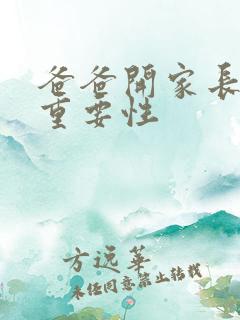 爸爸開家長
重要性
方远華
未经同意禁止转载